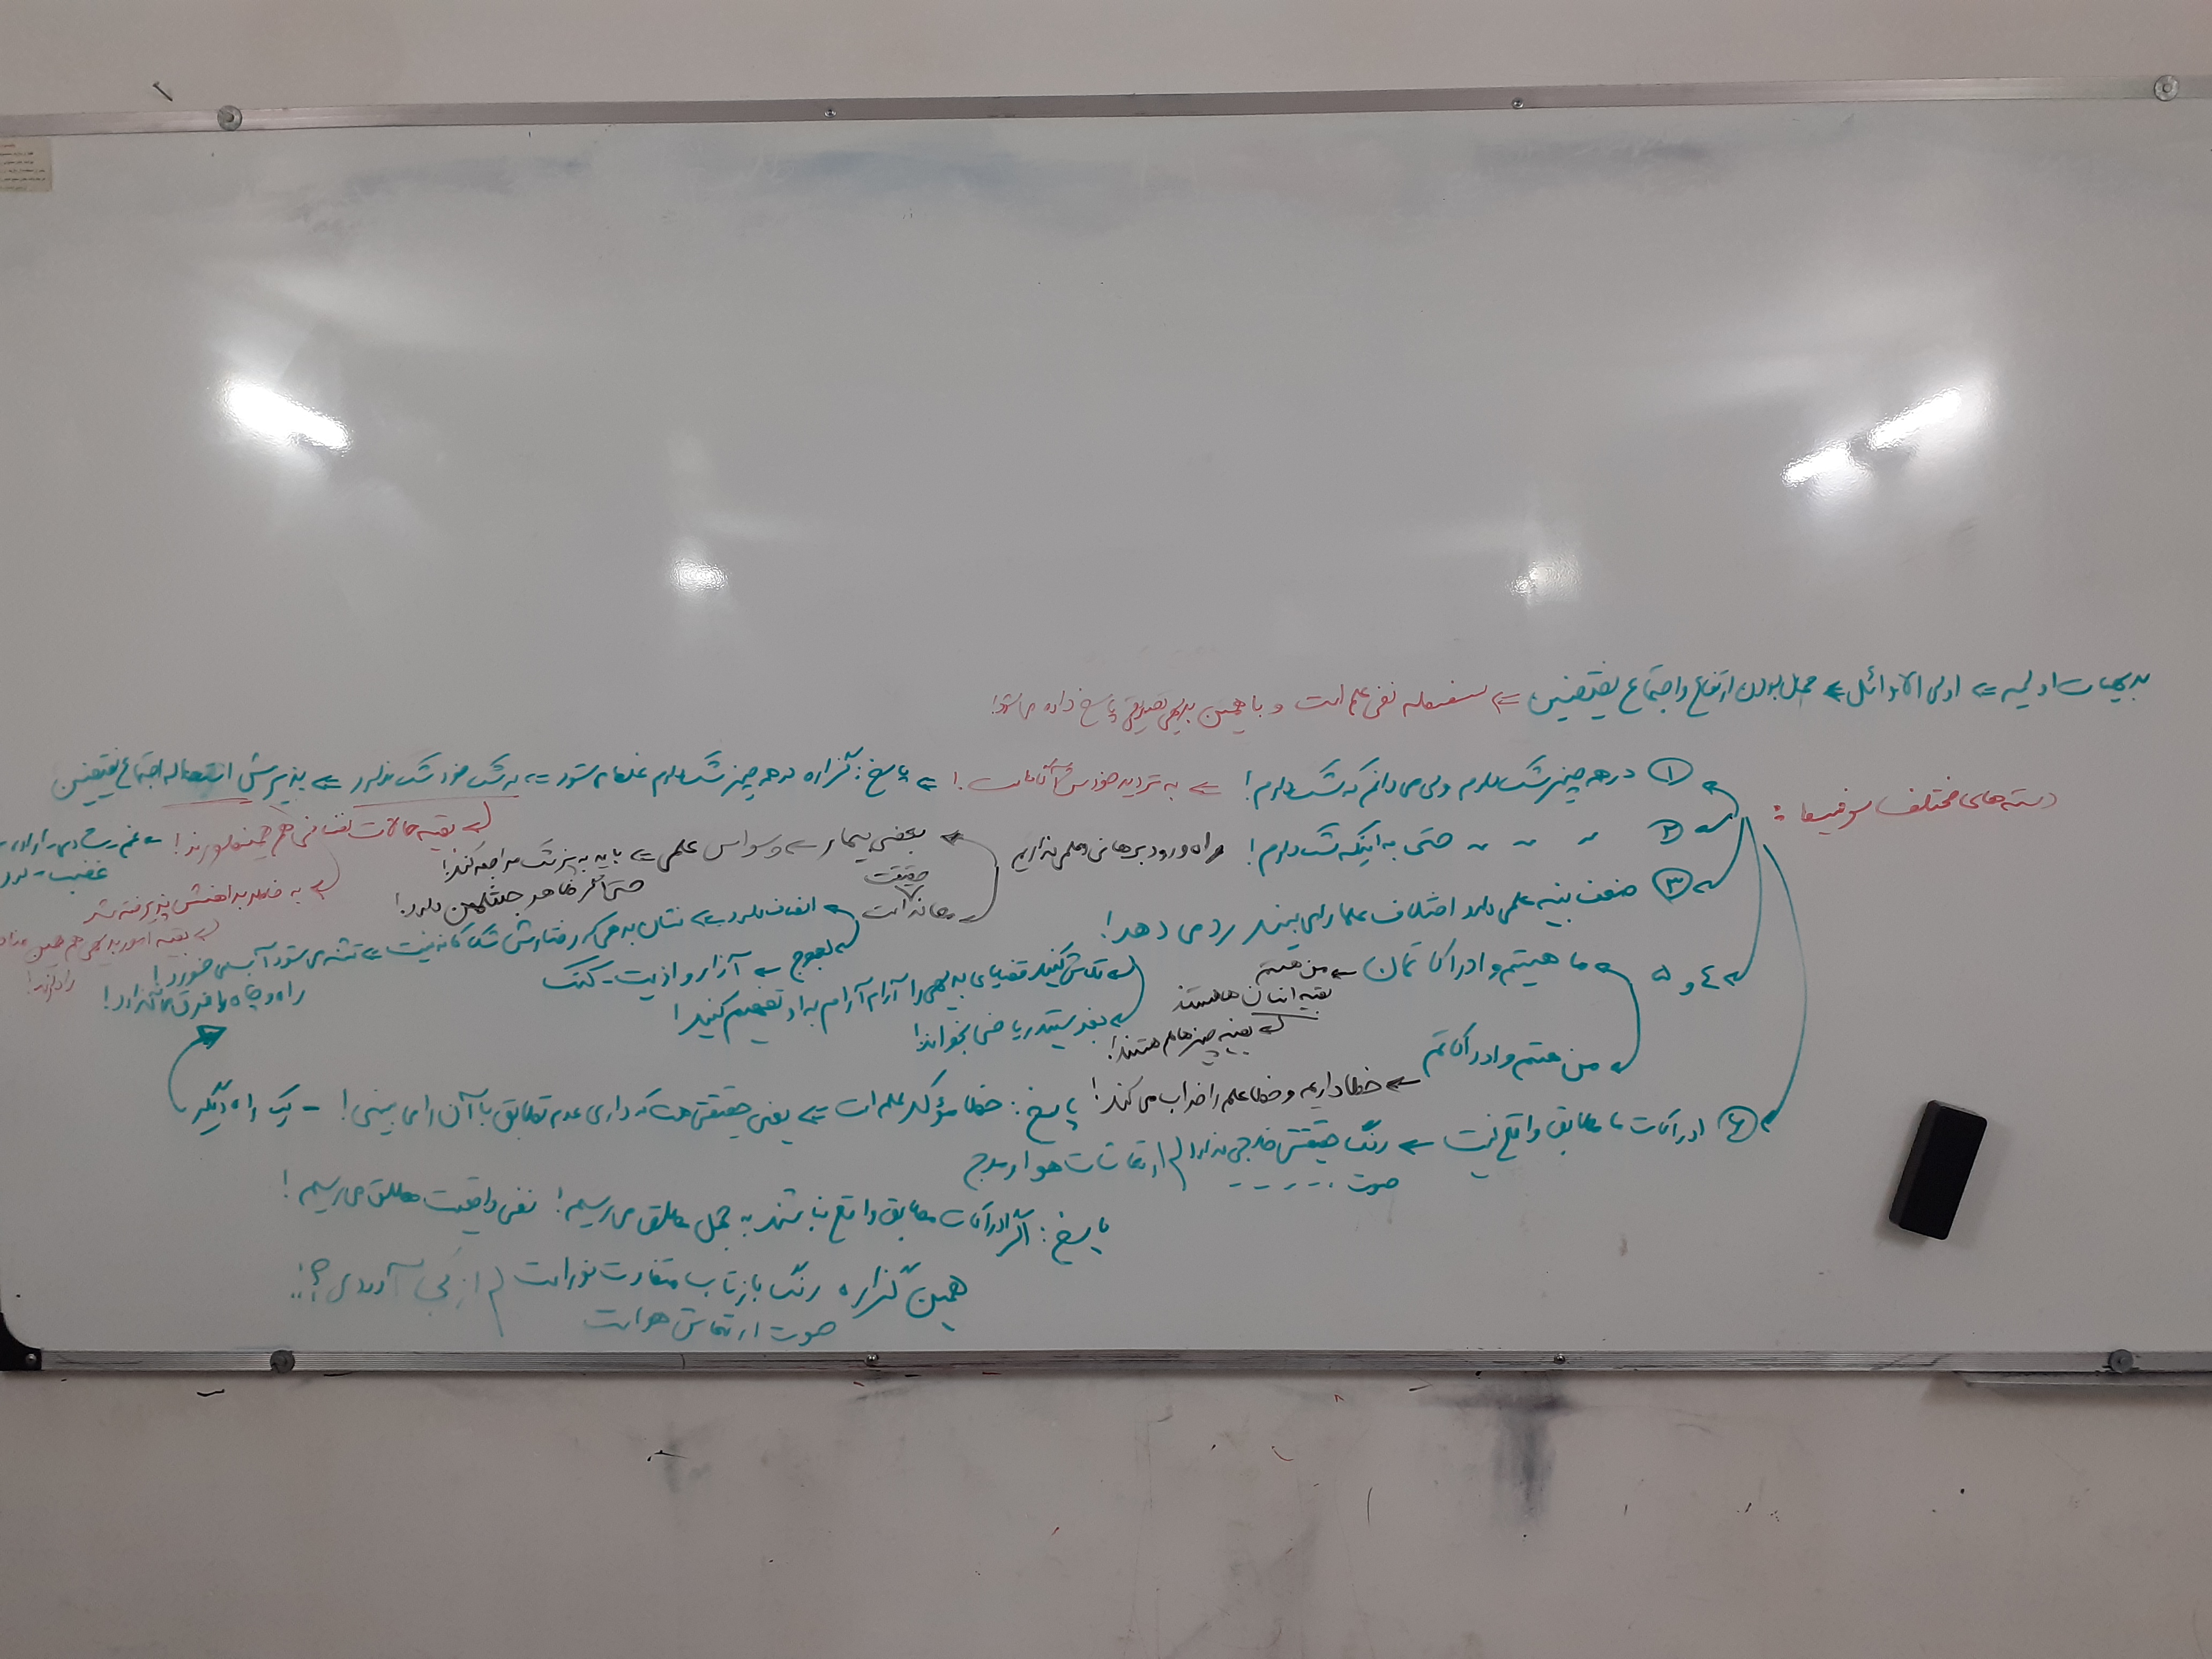 بدیهیات اولیه ⇐ اولی الاوائل ⇐ محال بودن ارتفاع و اجتماع نقیضین ⇐ سفسطه نفی علم است و با همین بدیهی تصدیقی پاسخ داده می‌شود!
دسته‌های مختلف سوفیسا :
① در همه چیز شک دارم ولی می‌دانم که شک دارم! ⇐ به تردید خودش آگاه است! ⇐ پاسخ: گزاره در همه چیز شک دارم غلط می‌شود ⇐ به شک خود شک ندارد ⇐ پذیرش استحاله اجتماع نقیضین
بقیه حالات نفسانی هم همینطورند! ← غم - شادی - اراده -
غضب - درد
به خاطر بداهتش پذیرفته شد
بقیه امور بدیهی هم همین
راه دارند!
② ~ ~ ~ حتی به اینکه شک دارم! راه ورود برهانی و علمی نداریم
بعضی بیمار ← وسواس علمی ⇐ باید به پزشک مراجعه کند!
حتی اگر ظاهر جنتلمن دارد!
حقیقت
معاند است
انصاف دارد ⇐ نشان بدهی که رفتارش شکاکانه نیست ⇐ تشنه می‌شود آب می‌خورد!
راه و چاه با فرق گذارد!
لجوج ← آزار و اذیت - کتک
③ ضعف بنیه علمی دارد اختلاف علما را می‌بیند رد می‌دهد!
تلاش کنید قضایای بدیهی را آرام آرام به او تفهیم کنید!
بفرستید ریاضی بخواند!
٤ و ۵ ما هستیم و ادراکاتمان ← من هستم
بقیه انسان‌ها هستند
بقیه چیزها هم هستند!
من هستم و ادراکاتم
⑥ ادراکات ما مطابق واقع نیست ← خطا داریم و خطا علم را خراب می‌کند! پاسخ: خطا مؤکد علم است ⇐ یعنی حقیقتی هست که داری عدم تطابق با آن را می‌بینی! - یک راه دیگر
← رنگ حقیقتش خارجی ندارد ارتعاشات هوا و موج
صوت - - - - -
پاسخ: اگر ادراکات مطابق واقع نباشند به جهل مطلق می‌رسیم! نفی واقعیت مطلق می‌رسیم!
همین گزاره رنگ بازتاب متفاوت نور است از کجا آوردی؟!
صوت ارتعاش هواست